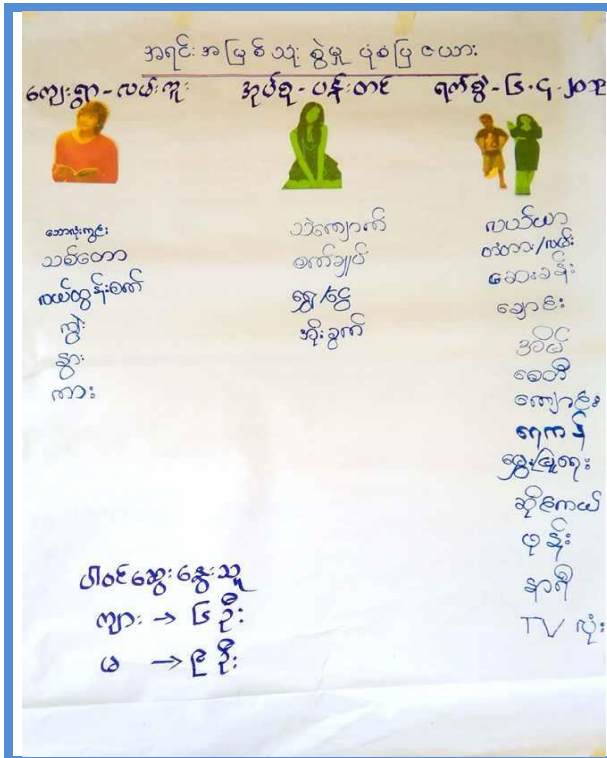 အရင်းအမြစ်သုံးစွဲမှု ပုံစံပြဇယား
ကျေးရွာ - လမ်းကူး
အုပ်စု - ပန်းတင်
ရက်စွဲ - ၆.၄.၂၀၁၃
ဘောလုံးကွင်း
သစ်တော
လယ်ထွန်းစက်
ကျွဲ
နွား
ကား
သဲကျောက်
စက်ချုပ်
ရွှေ/ငွေ
အိုးခွက်
လယ်ယာ
တံတား/လမ်း
ဆေးခန်း
ချောင်း
အိမ်
စေတီ
ကျောင်း
ရေကန်
မွေးမြူရေး
ဆိုင်ကယ်
ဖုန်း
နာရီ
TV လုံး
ပါဝင်ဆွေးနွေးသူ
ကျား → ၆ ဦး
မ → ၉ ဦး